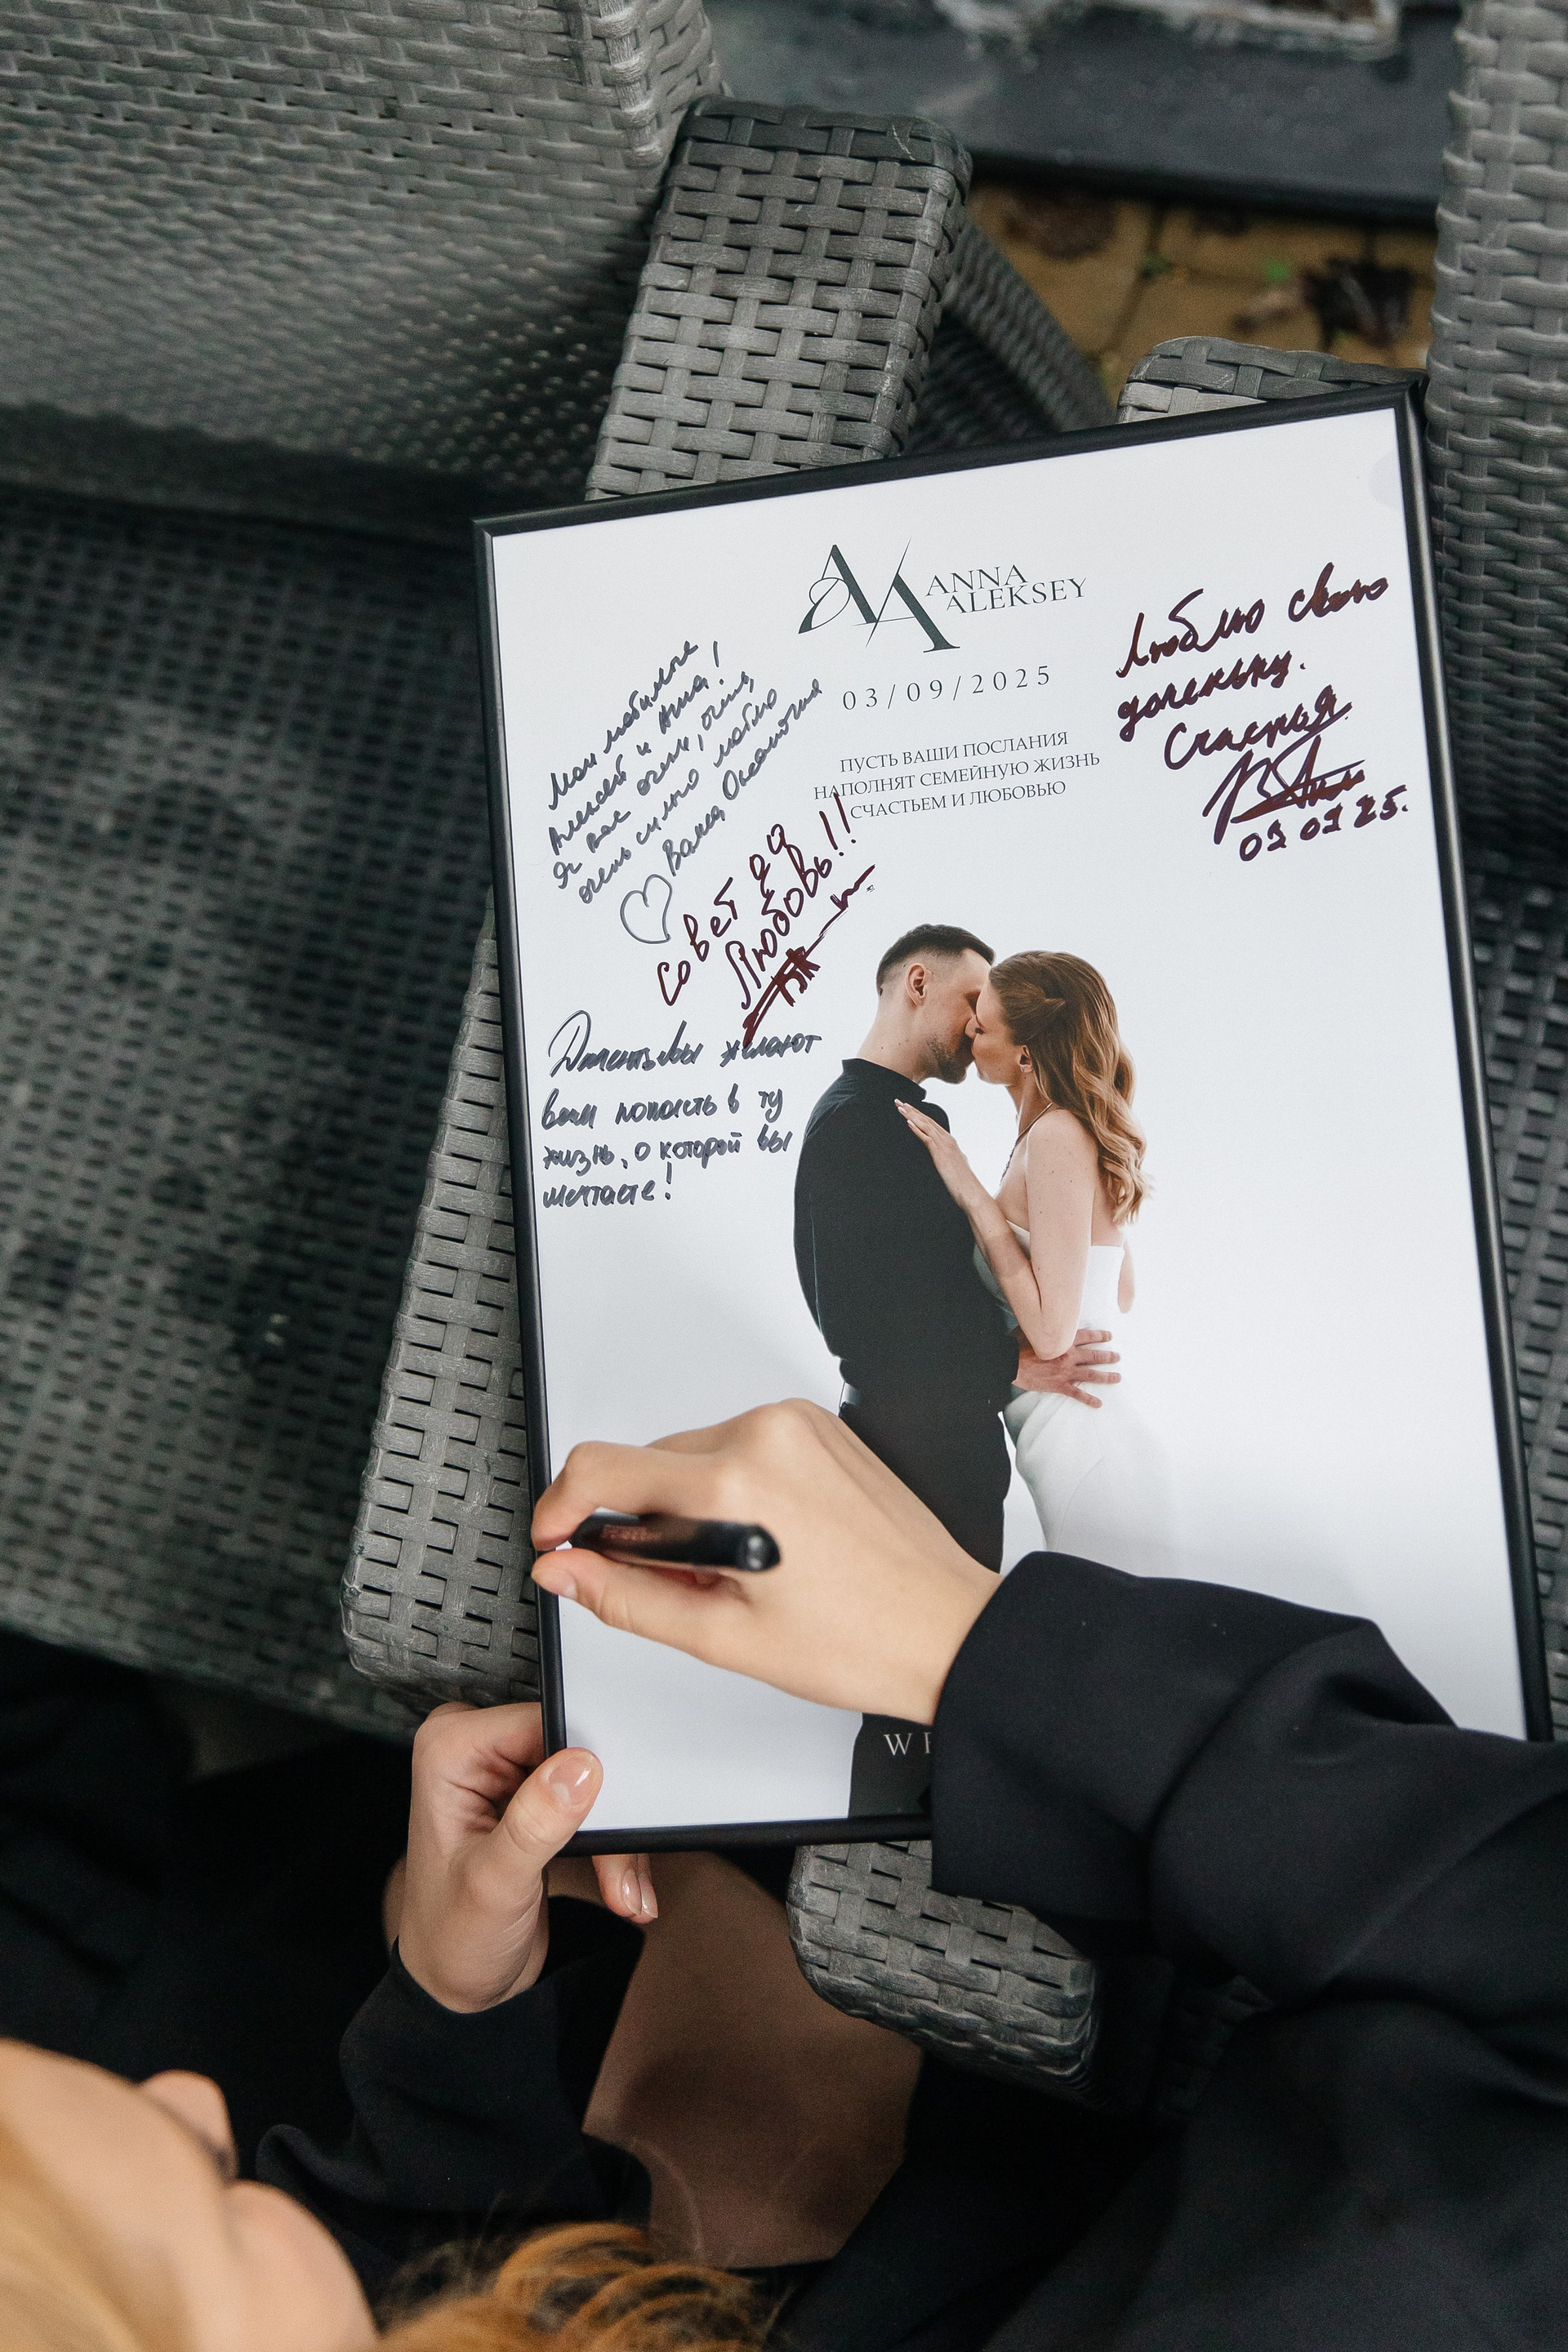 AA
ANNA
ALEKSEY
03/09/2025
ПУСТЬ ВАШИ ПОСЛАНИЯ
НАПОЛНЯТ СЕМЕЙНУЮ ЖИЗНЬ
СЧАСТЬЕМ И ЛЮБОВЬЮ
Мои любимые
Алексей и Анна!
Я вас очень, очень,
очень сильно люблю
Ваша
Совет да
Любовь!!
желают
вам попасть в ту
жизнь, о которой вы
мечтаете!
Люблю свою
доченьку.
Счастья
03 09 25.
WE